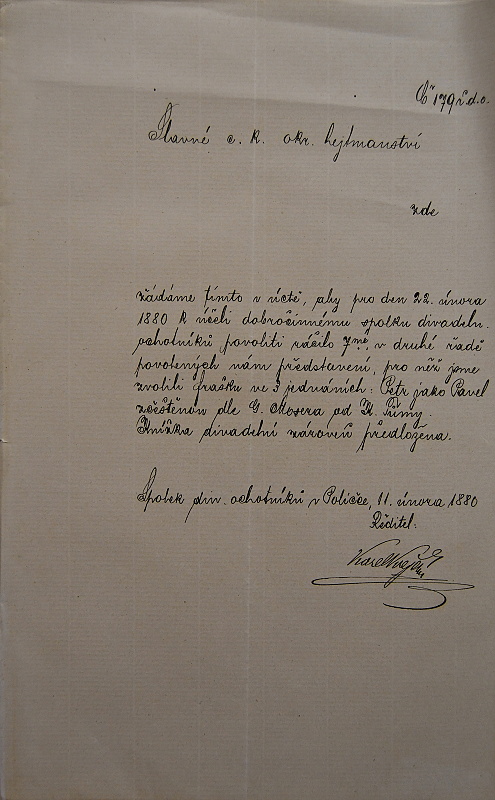 Č 179 i.d.o.
Slavné c. k. okr. hejtmanství
zde
žádáme tímto v úctě, aby pro den 22. února
1880 k účeli dobročinnému spolku divadeln.
ochotníků povoliti ráčilo 7mé, v druhé řadě
povolených nám představení, pro něž jsme
zvolili frašku ve 3 jednáních: Petr jako Pavel
zčeštěnou dle G. Mosera od K. Tůmy.
Knížka divadelní zároveň předložena.
Spolek div. ochotníků v Poličce, 11. února 1880
Ředitel:
Karel